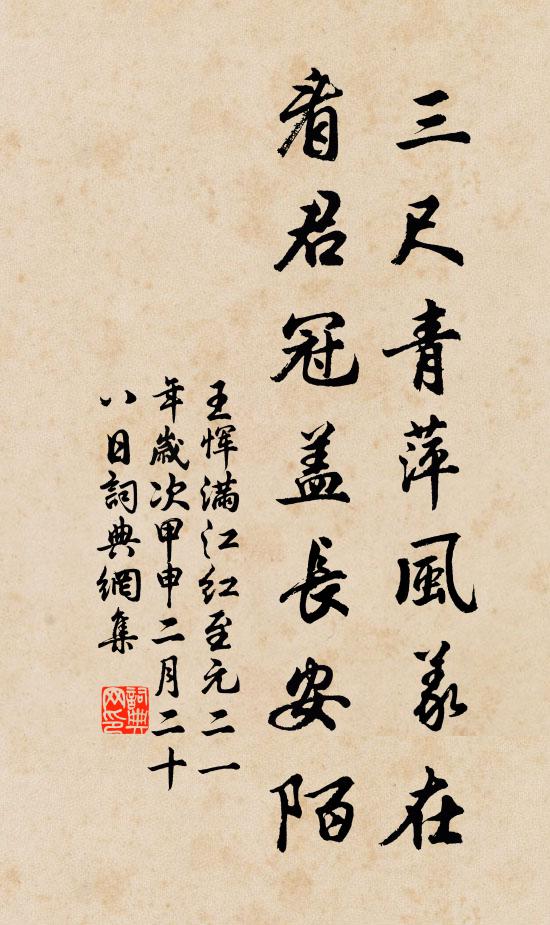 三尺青萍風義在
看君冠盖長安陌
王惲滿江紅至元二一
年歲次甲申二月二十
八日詞典網集
詞典
网印